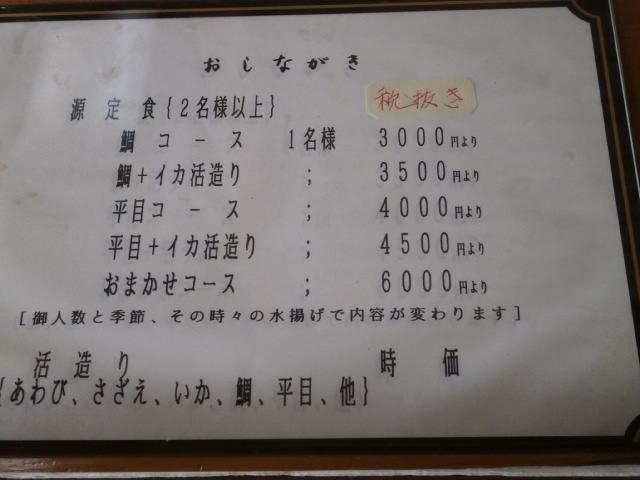 おしながき
税抜き
源定食{2名様以上}
鯛コース 1名様 3000円より
鯛+イカ活造り ; 3500円より
平目コース ; 4000円より
平目+イカ活造り ; 4500円より
おまかせコース ; 6000円より
[御人数と季節、その時々の水揚げで内容が変わります]
活造り 時価
{あわび、さざえ、いか、鯛、平目、他}